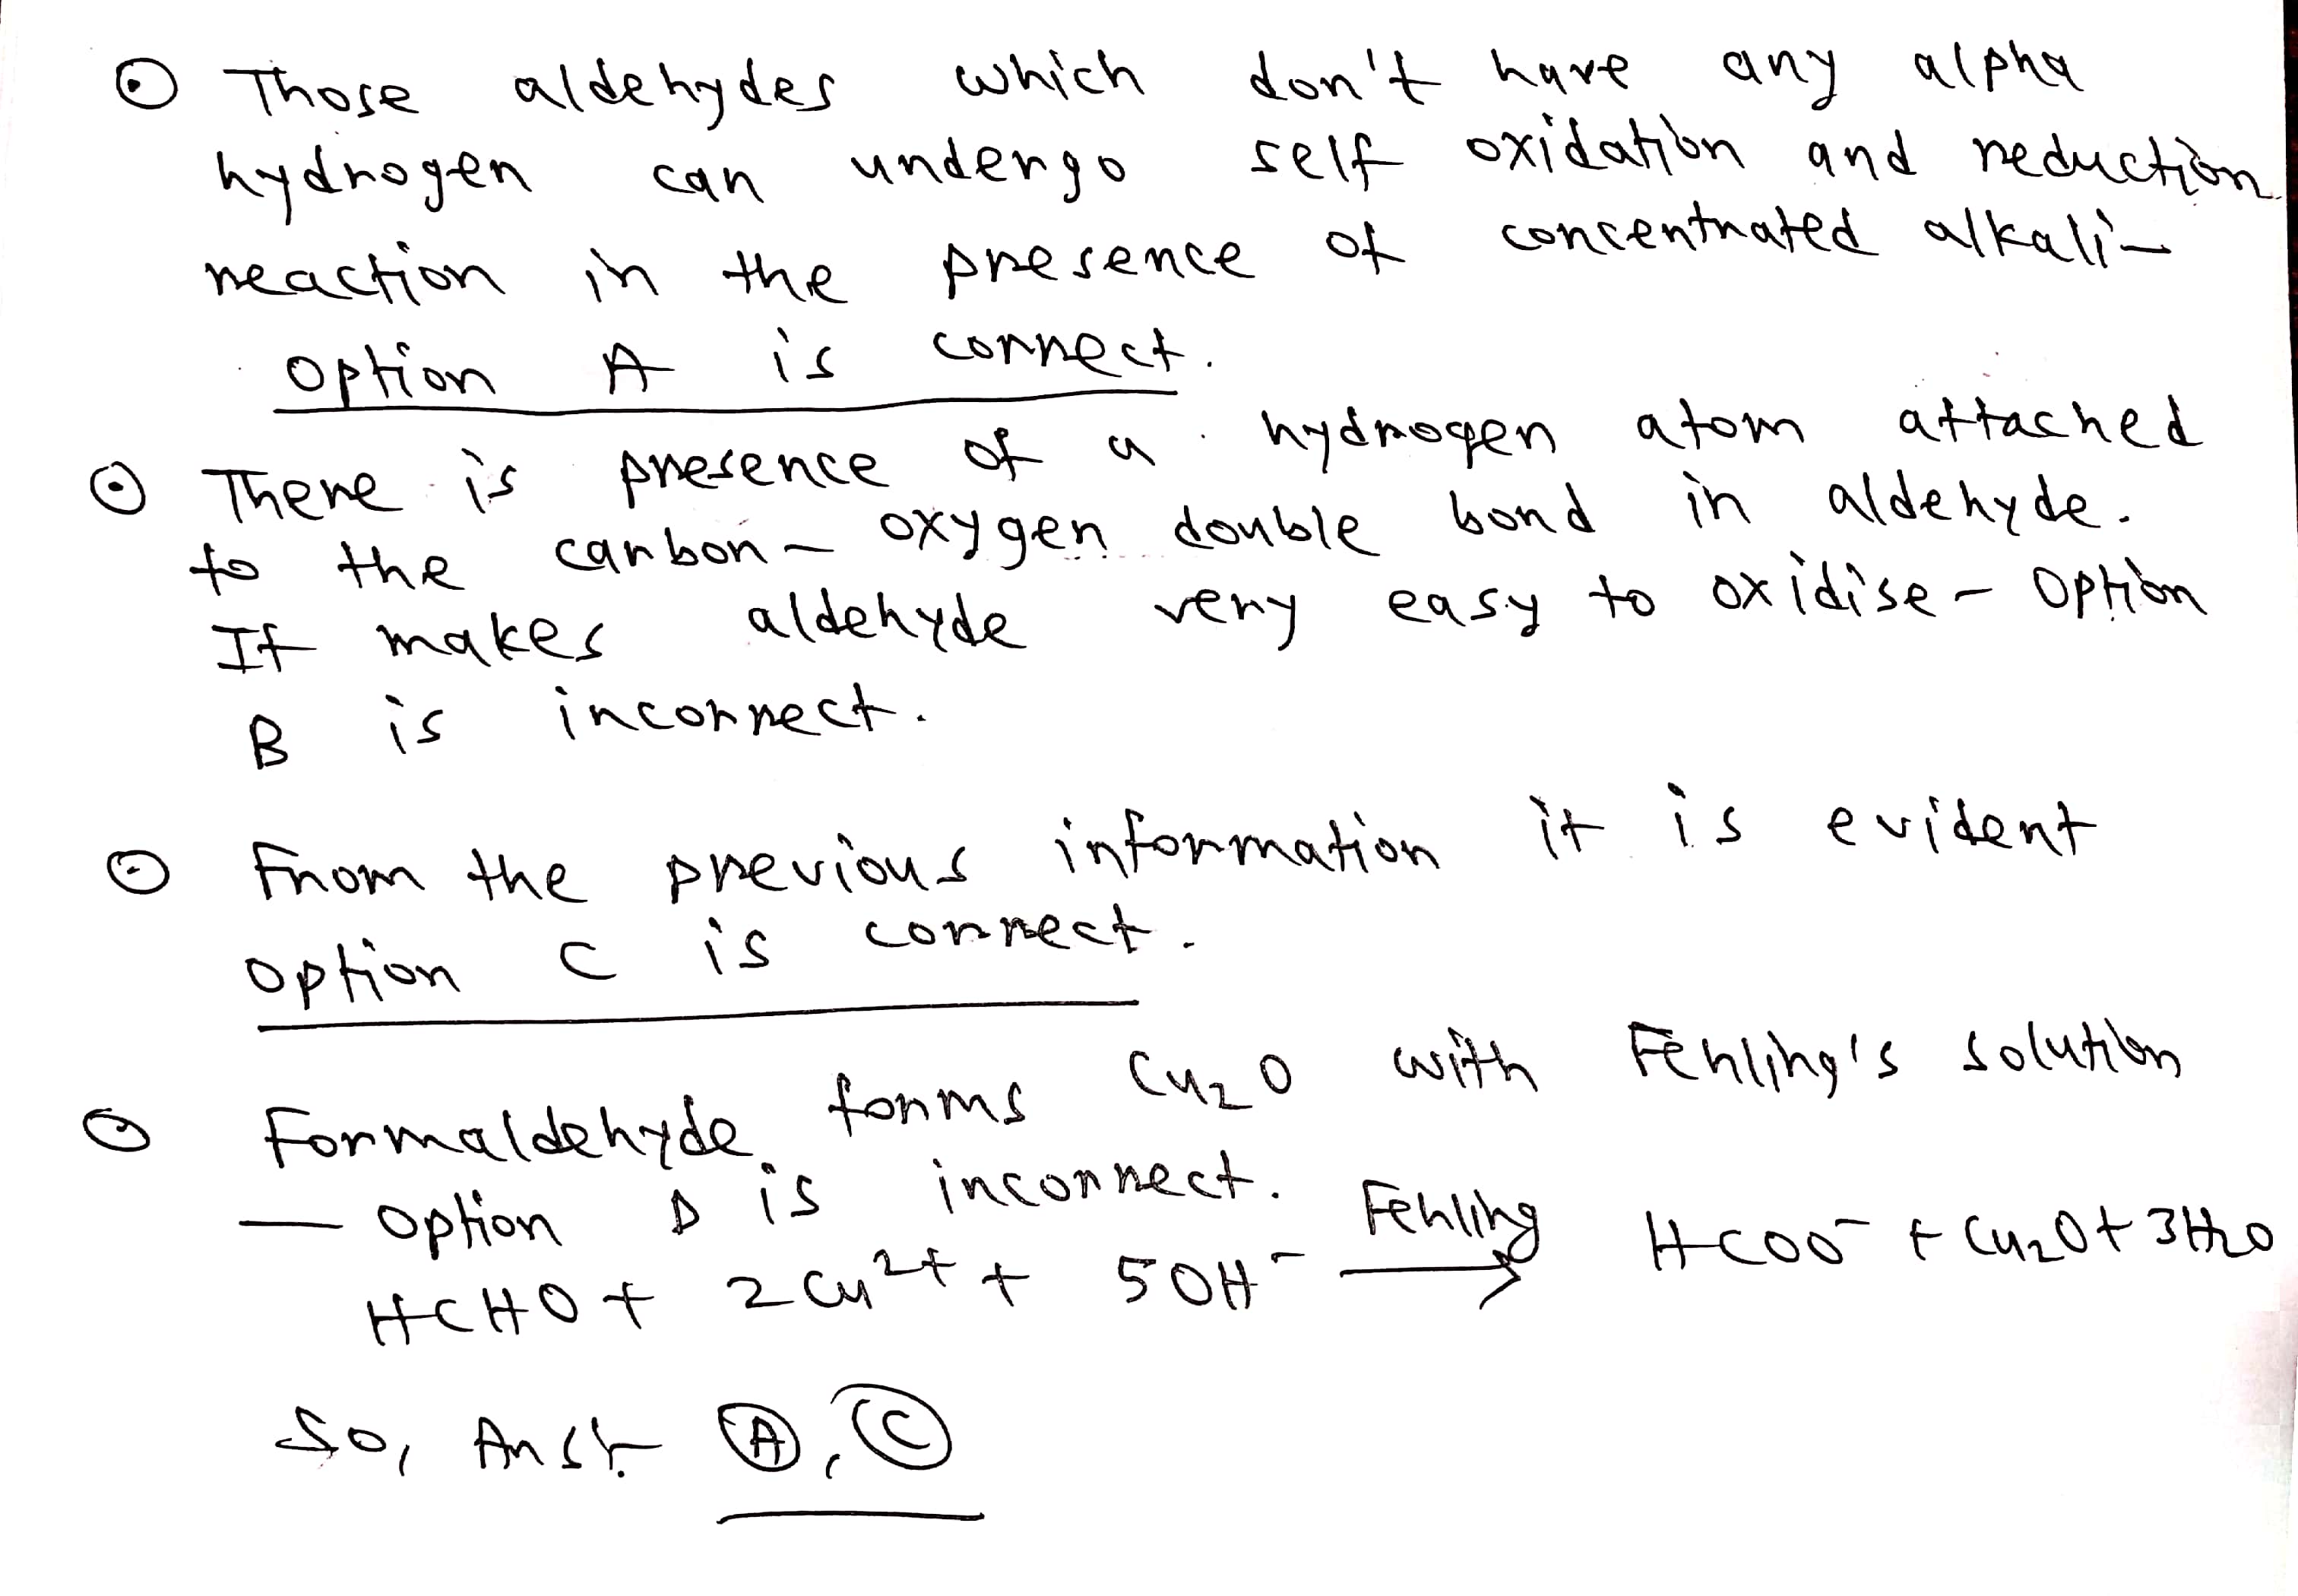 ⊙ Those aldehydes which don't have any alpha
hydrogen can undergo self oxidation and reduction
reaction in the presence of concentrated alkali -
option A is correct.
⊙ There is presence of a hydrogen atom attached
to the carbon - oxygen double bond in aldehyde.
It makes aldehyde very easy to oxidise - Option
B is incorrect.
⊙ From the previous information it is evident
option C is correct.
⊙ Formaldehyde forms Cu₂O with Fehling's solution
— Option D is incorrect.
HCHO + 2Cu²⁺ + 5OH⁻ Fehling → HCOO⁻ + Cu₂O + 3H₂O
So, Ans:- Ⓐ, Ⓒ